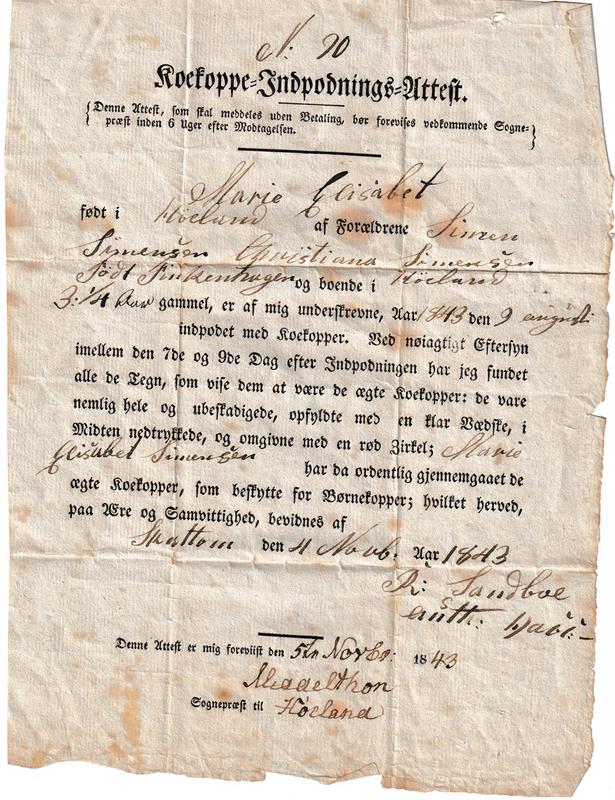 N: 20
Koekoppe=Indpodnings=Attest.
{Denne Attest, som skal meddeles uden Betaling, bør forevises vedkommende Sogne=
præst inden 6 Uger efter Modtagelsen.}
Marie Elisabet
født i Höeland af Forældrene Simen
Simensen Christiana Simensen
Född Finkenhagen og boende i Höeland
3:1/4 Aar gammel, er af mig underskrevne, Aar 1843 den 9 august
indpodet med Koekopper. Ved nøiagtigt Eftersyn
imellem den 7de og 9de Dag efter Indpodningen har jeg fundet
alle de Tegn, som vise dem at være de ægte Koekopper: de vare
nemlig hele og ubeskadigede, opfyldte med en klar Vædske, i
Midten nedtrykkede, og omgivne med en rød Zirkel; Marie
Elisabet Simensen har da ordentlig gjennemgaaet de
ægte Koekopper, som beskytte for Børnekopper; hvilket herved,
paa Ære og Samvittighed, bevidnes af
den 4 Novb: Aar 1843
R: Sandboe
auth: Vacc:
Denne Attest er mig foreviist den 5te Novbr: 1843
Meddelthon
Sognepræst til Höeland